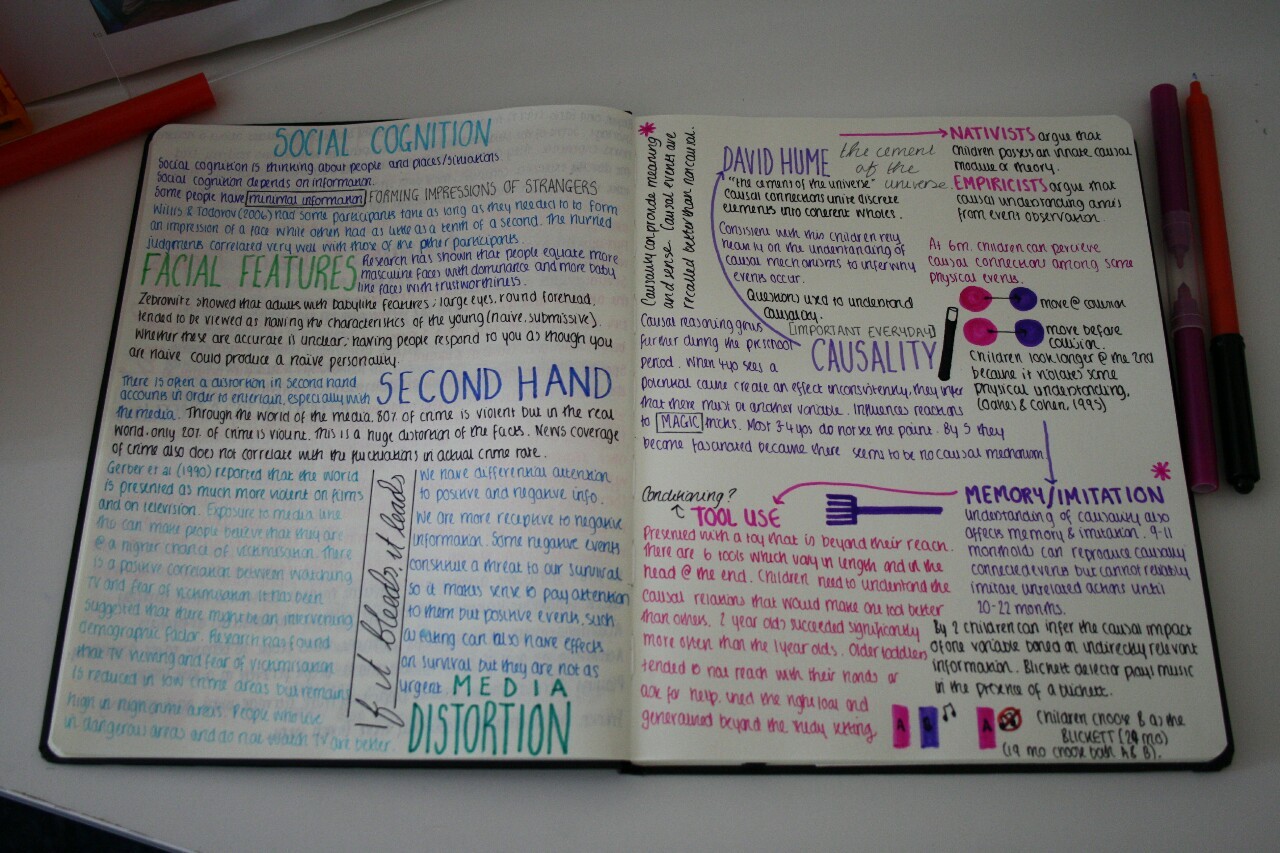 SOCIAL COGNITION
Social cognition is thinking about people and places/situations
Social cognition depends on information.
Some people have minimal information FORMING IMPRESSIONS OF STRANGERS
Willis & Todorov (2006) had some participants take as long as they needed to to form
an impression of a face while others had as little as a tenth of a second. The hurried
judgments correlated very well with those of the other participants.
FACIAL FEATURES
Research has shown that people equate more
masculine faces with dominance and more baby
like faces with trustworthiness.
Zebrowitz showed that adults with babylike features; large eyes, round forehead,
tended to be viewed as having the characteristics of the young (naive, submissive).
Whether these are accurate is unclear; having people respond to you as though you
are naive could produce a naive personality.
SECOND HAND
There is often a distortion in second hand
accounts in order to entertain, especially with
the media. Through the world of the media, 80% of crime is violent but in the real
world, only 20% of crime is violent. This is a huge distortion of the facts. News coverage
of crime also does not correlate with the fluctuations in actual crime rate.
Gerber et al (1990) reported that the world
is presented as much more violent on films
and on television. Exposure to media like
this can make people believe that they are
@ a higher chance of victimisation. There
is a positive correlation between watching
TV and fear of victimisation. It has been
suggested that there might be an intervening
demographic factor. Research has found
that TV viewing and fear of victimisation
is reduced in low crime areas but remains
high in high crime areas. People who live
in dangerous areas and do not watch TV are better.
If it bleeds, it leads
We have differential attention
to positive and negative info.
We are more receptive to negative
information. Some negative events
constitute a threat to our survival
so it makes sense to pay attention
to them but positive events, such
as eating can also have effects
on survival but they are not as
urgent.
MEDIA
DISTORTION
* Causality can provide meaning
and sense. Causal events are
recalled better than noncausal.
DAVID HUME
"the cement of the universe"
causal connections unite discrete
elements into coherent wholes.
the cement
of the
universe.
Consistent with this children rely
heavily on the understanding of
causal mechanisms to infer why
events occur.
Questions used to understand
causality.
[IMPORTANT EVERYDAY]
CAUSALITY
Causal reasoning grows
further during the preschool
period. When 4yo sees a
potential cause create an effect inconsistently, they infer
that there must be another variable. Influences reactions
to MAGIC tricks. Most 3-4yos do not see the point. By 5 they
become fascinated because there seems to be no causal mechanism
NATIVISTS argue that
children possess an innate causal
module or theory.
EMPIRICISTS argue that
causal understanding arises
from event observation.
At 6m. children can perceive
causal connections among some
physical events.
move @ collision
move before
collision.
Children look longer @ the 2nd
because it violates some
physical understanding.
(Oakes & Cohen, 1995)
*
MEMORY/IMITATION
understanding of causality also
affects memory & imitation. 9-11
month olds can reproduce causally
connected events but cannot reliably
imitate unrelated actions until
20-22 months.
Conditioning?
TOOL USE
Presented with a toy that is beyond their reach.
There are 6 tools which vary in length and in the
head @ the end. Children need to understand the
causal relations that would make one tool better
than others. 2 year olds succeeded significantly
more often than the 1 year olds. Older toddlers
tended to not reach with their hands or
ask for help, used the right tool and
generalised beyond the study setting.
By 2 children can infer the causal impact
of one variable based on indirectly relevant
information. Blickett detector plays music
in the presence of a blickett.
A B A
Children choose B as the
BLICKETT (24 mo)
(19 mo choose both A & B).